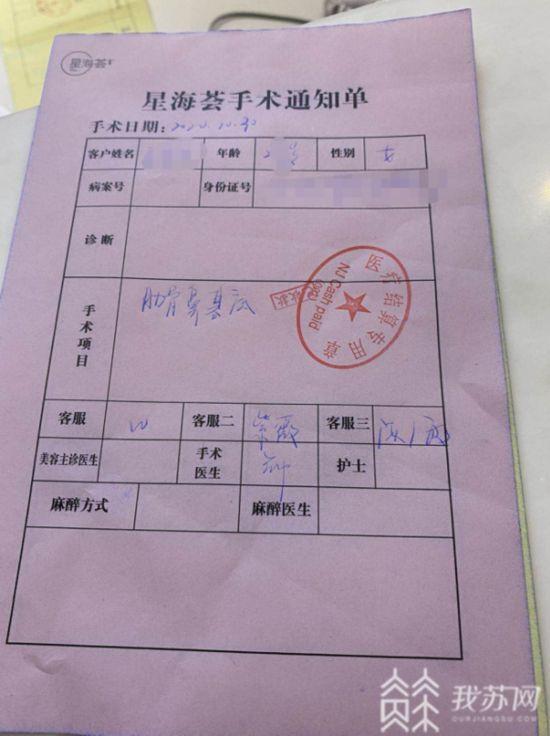 星海荟
星海荟手术通知单
手术日期：2020.10.30
客户姓名 年龄 性别 女
病案号 身份证号
诊断
手术项目 肋骨鼻基底
医疗结算专用章
NJ Cash paid
收款
客服 客服二 紫薇 客服三
美容主诊医生 手术医生 护士
麻醉方式 麻醉医生
我苏网
OURJIANGSU.COM